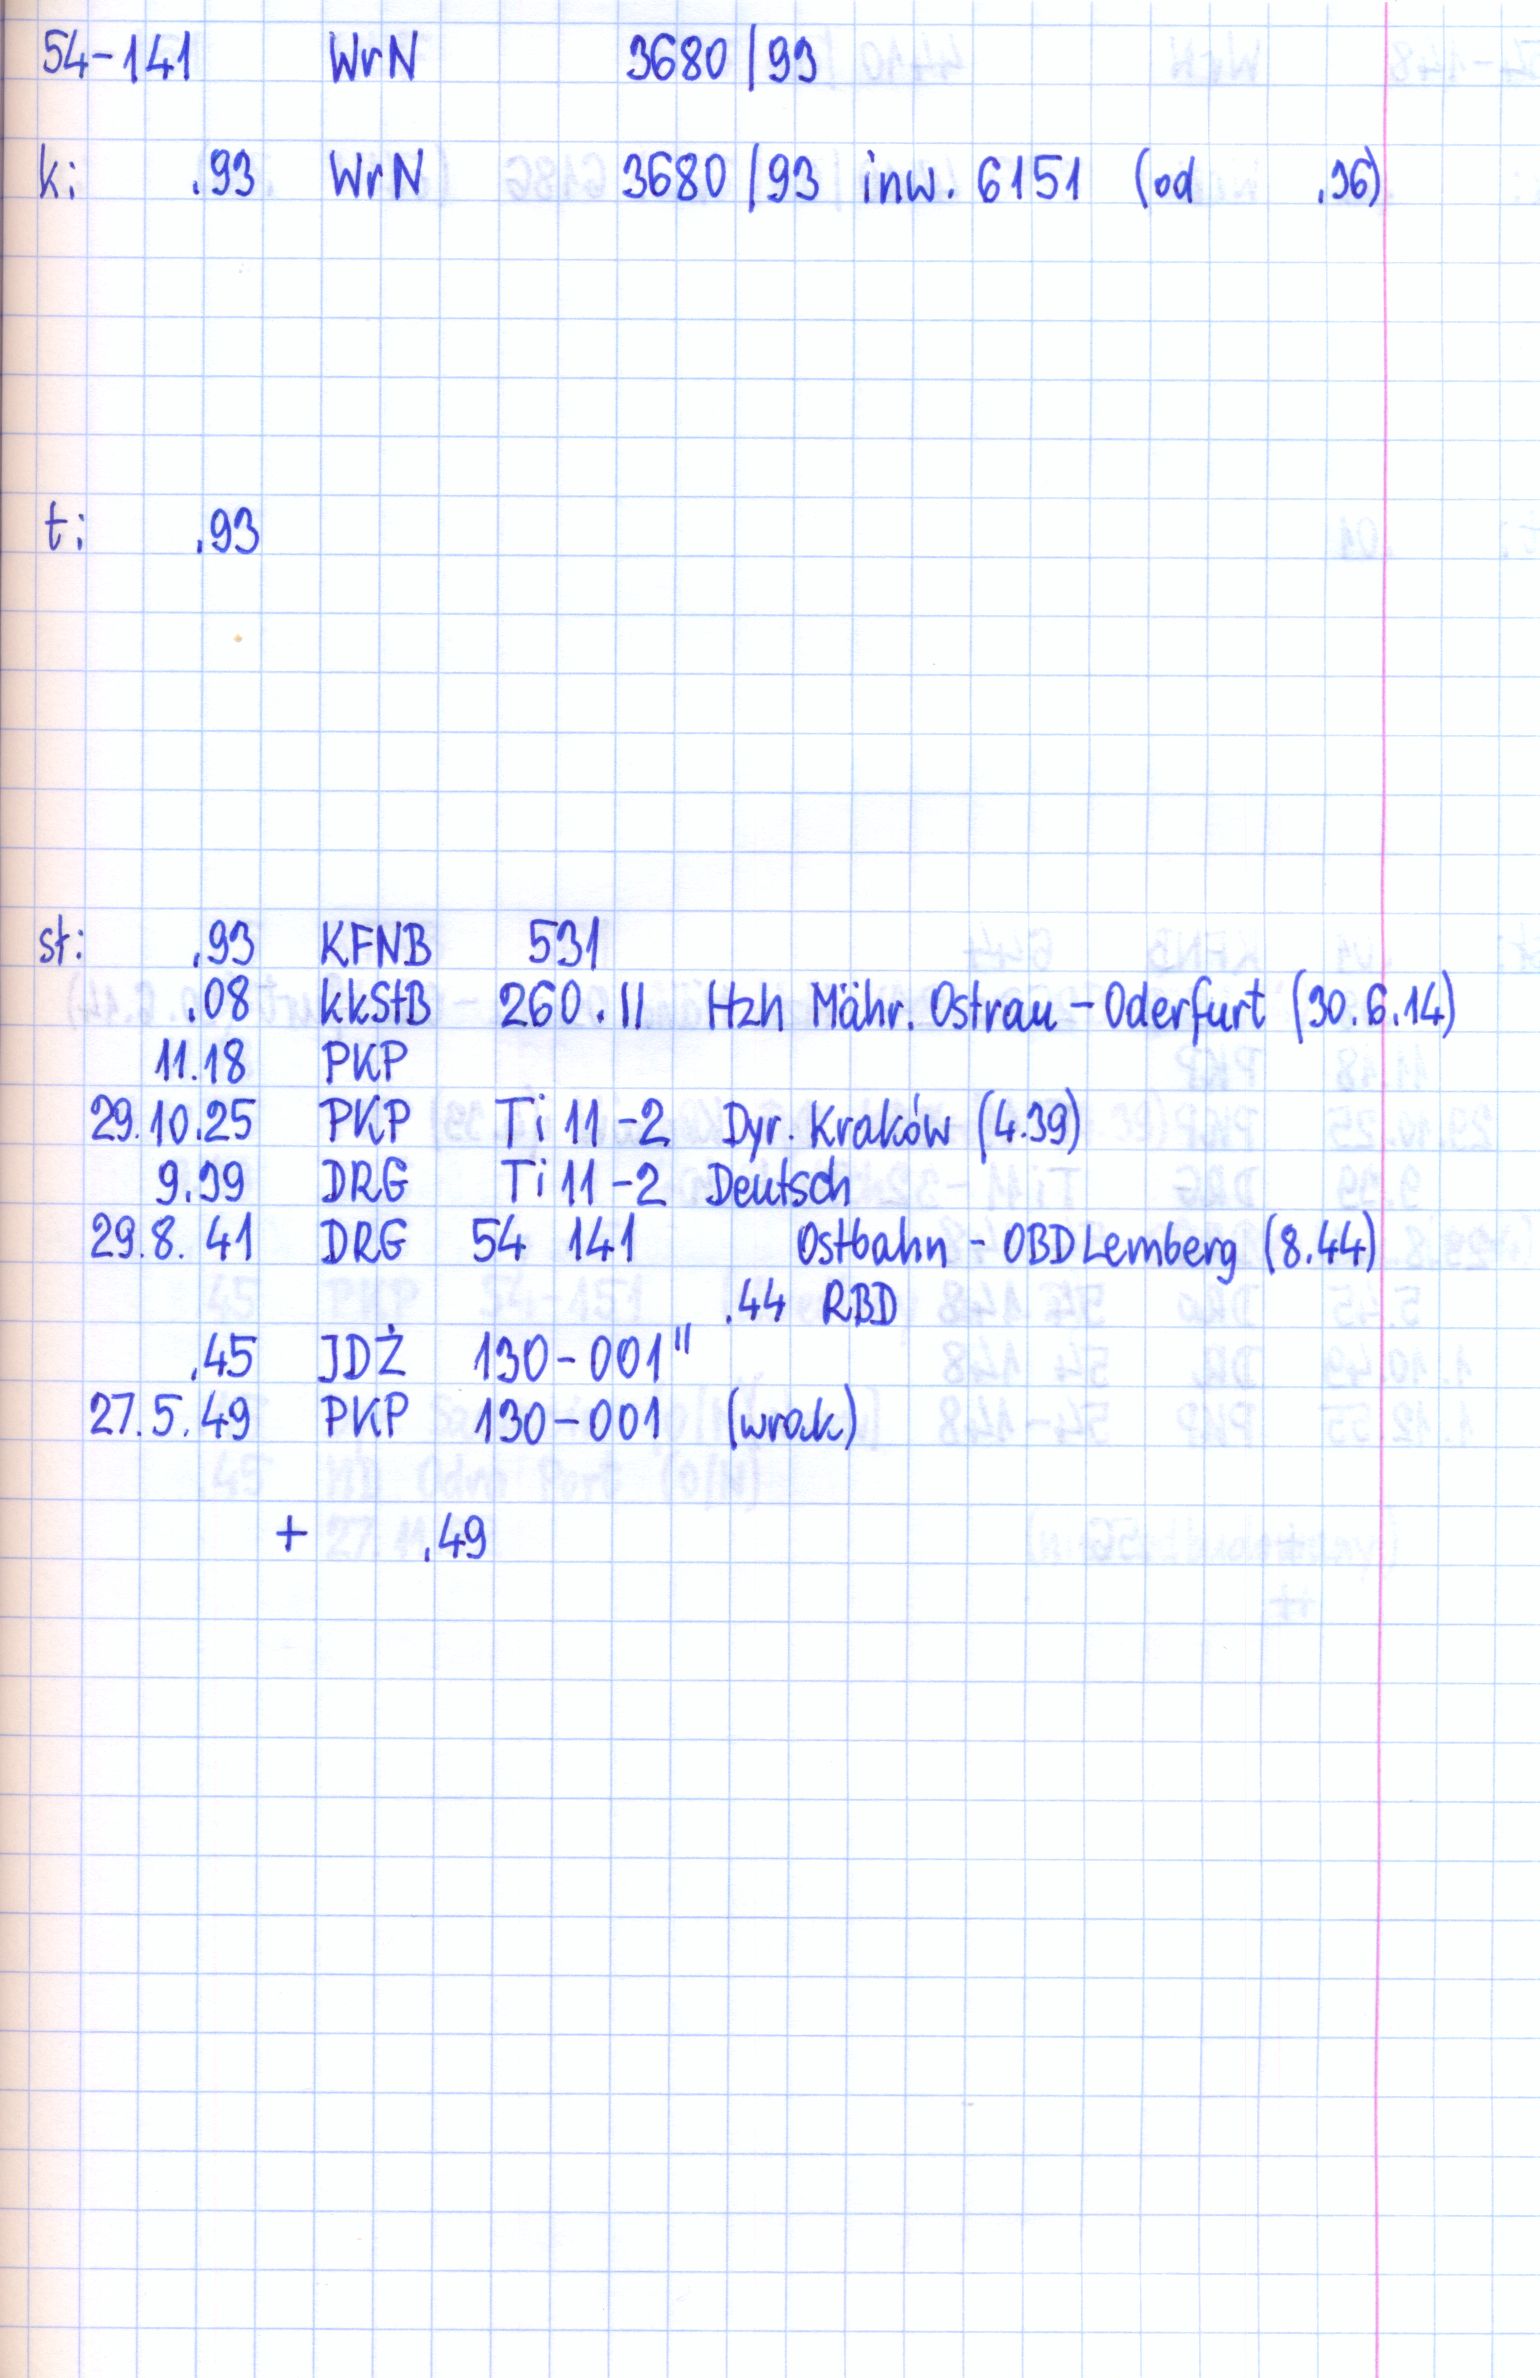 54-141 WrN 3680/93
k: .93 WrN 3680/93 inw. 6151 (od .96)
t: .93
st: .93 KFNB 531
.08 kkStB 260.11 Hzh Mähr. Ostrau - Oderfurt (30.6.14)
11.18 PKP
29.10.25 PKP Ti 11-2 Dyr. Kraków (4.39)
9.39 DRG Ti 11-2 Deutsch
29.8.41 DRG 54 141 Ostbahn - OBD Lemberg (8.44)
.44 RBD
.45 JDŻ 130-001"
27.5.49 PKP 130-001 (wrak)
+ .49